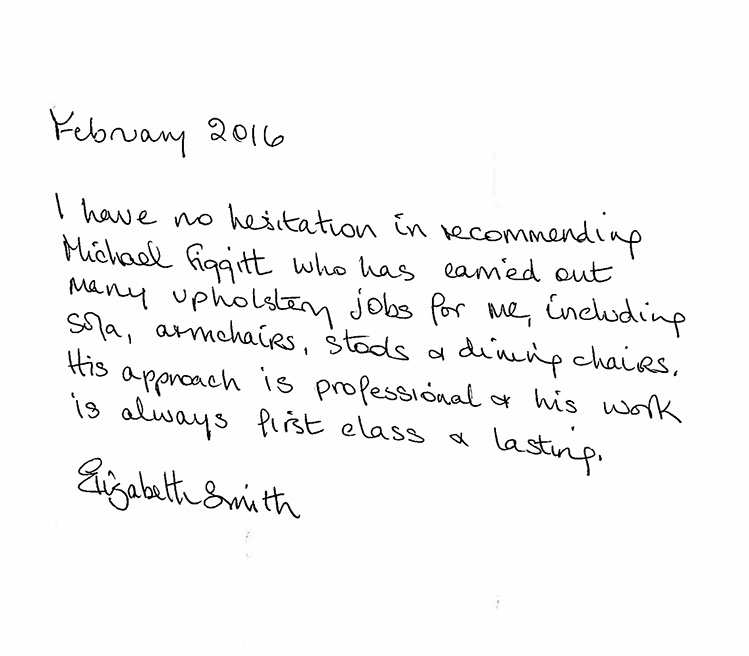 February 2016
I have no hesitation in recommending
Michael Figgitt who has carried out
many upholstery jobs for me, including
sofa, armchairs, stools & dining chairs.
His approach is professional & his work
is always first class & lasting.
Elizabeth Smith